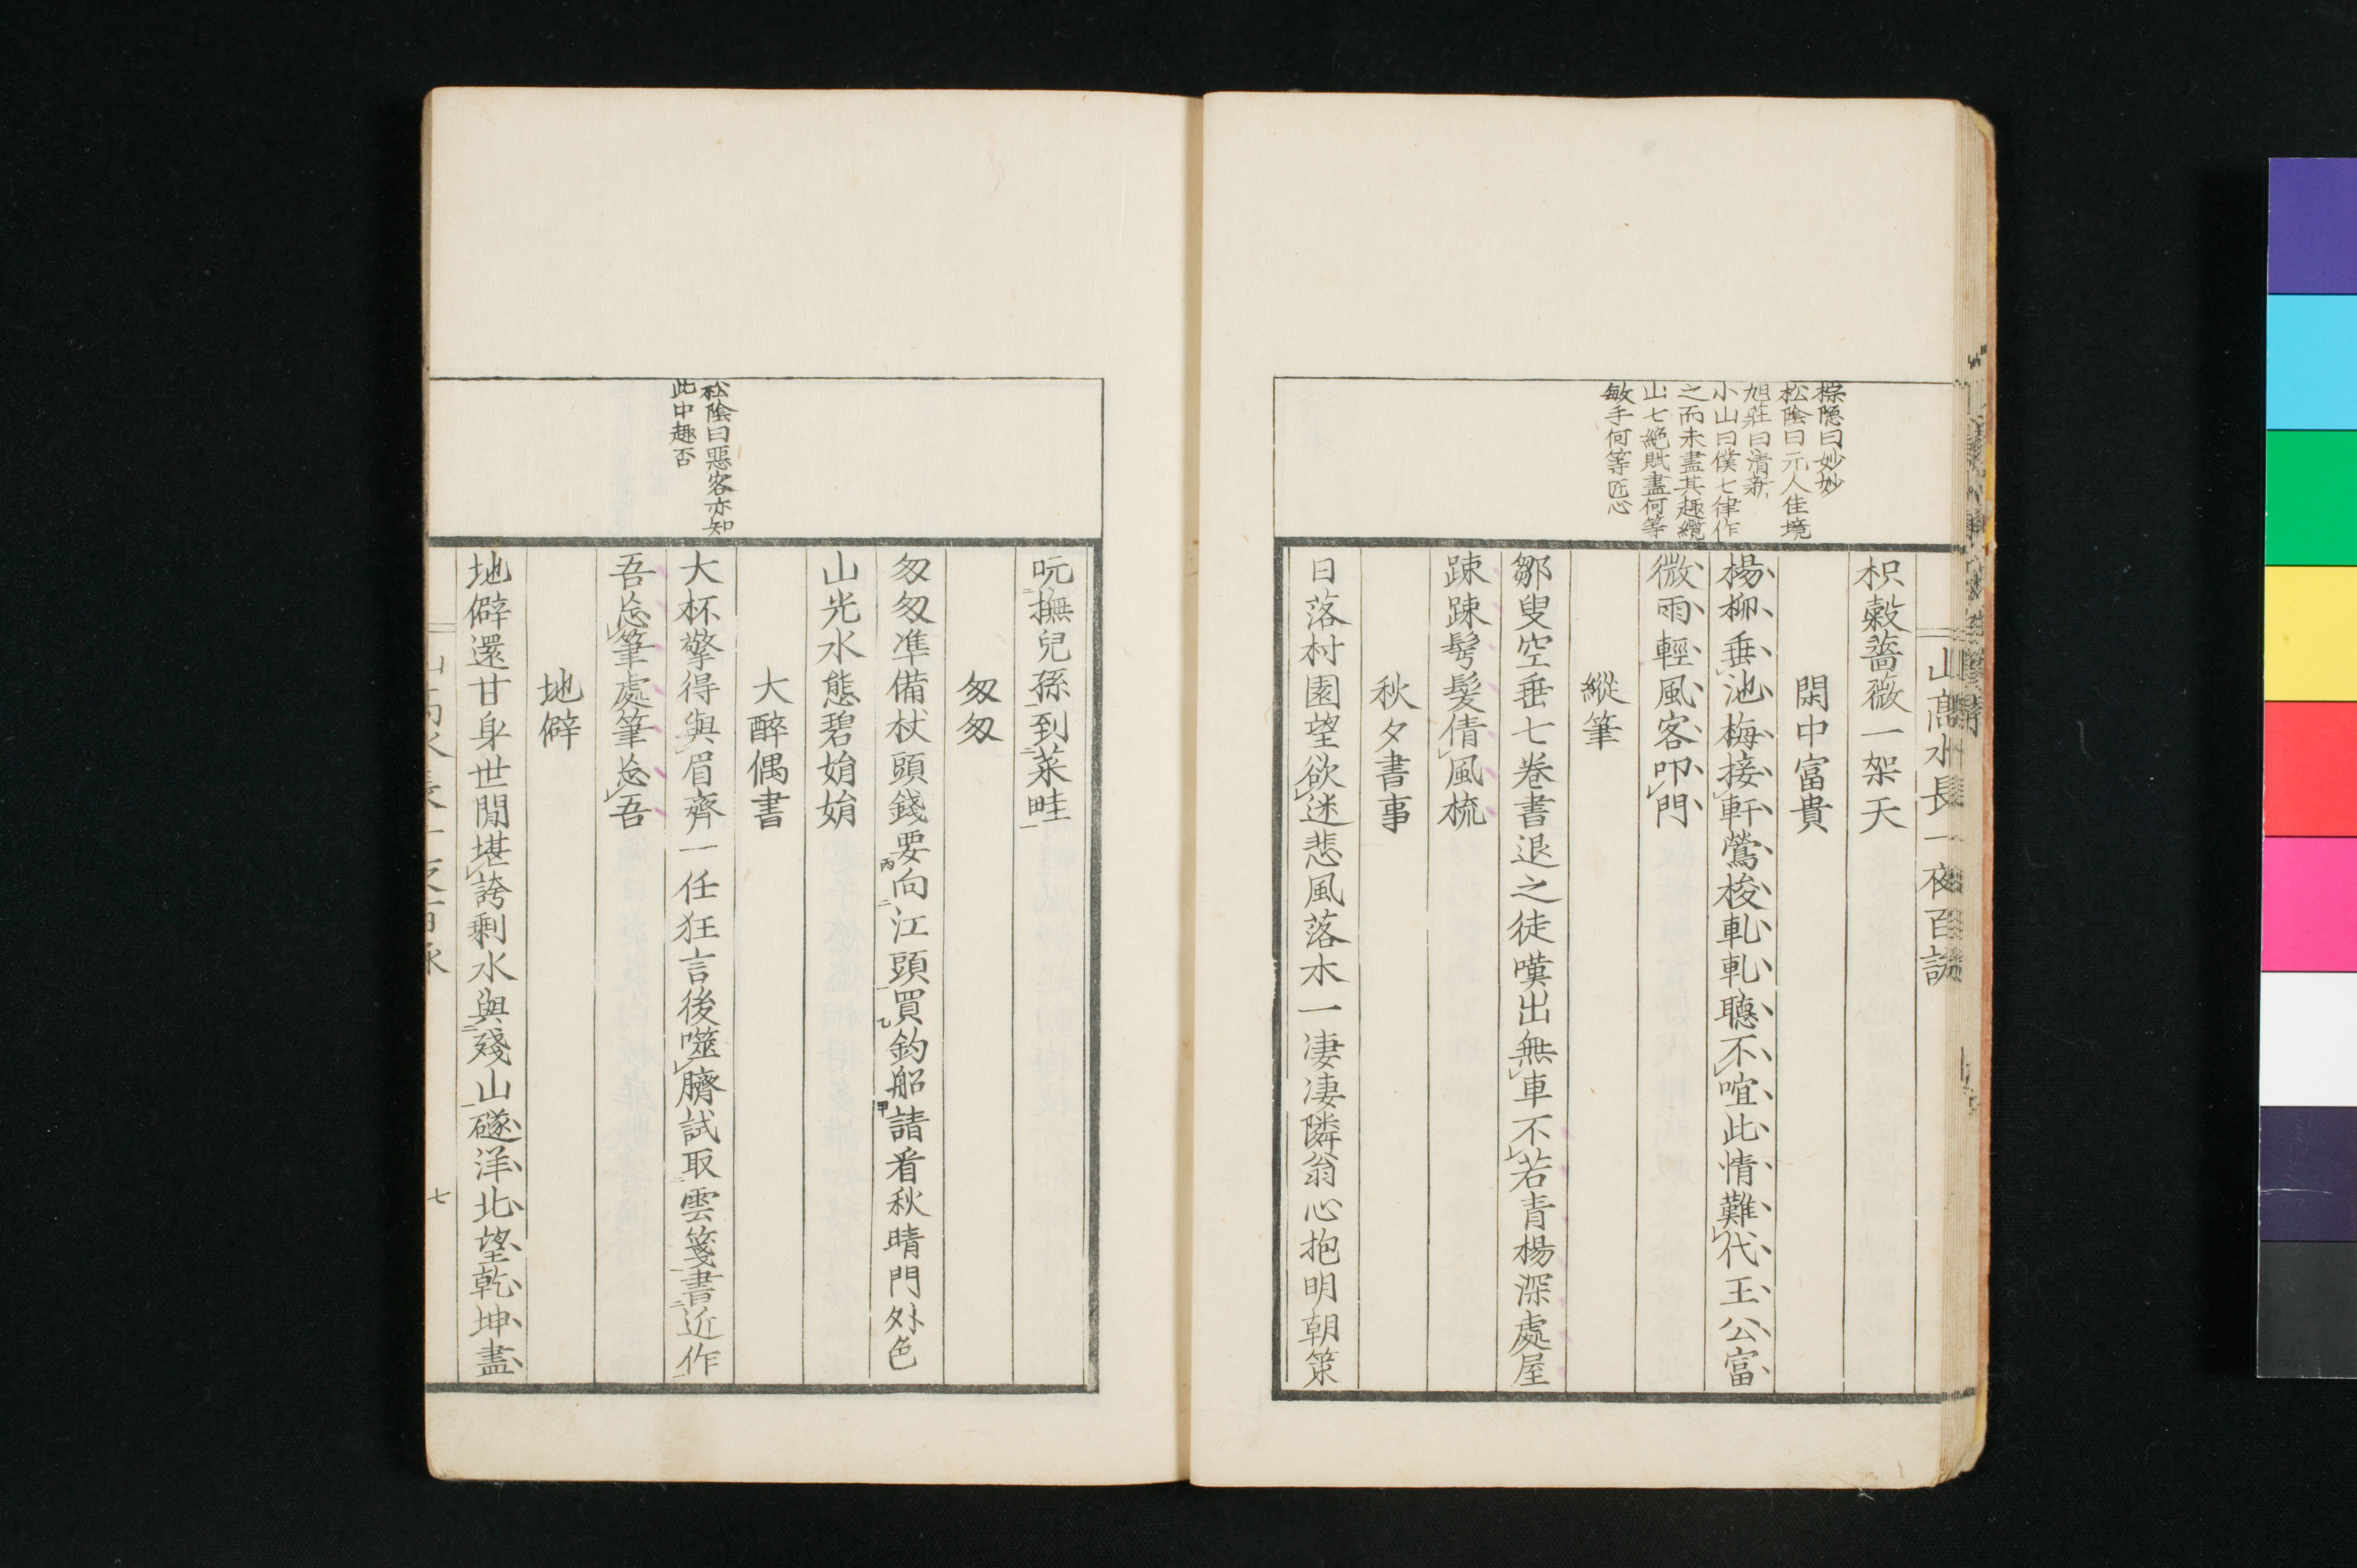 山高水長一夜百詠
棕隱曰妙妙
松陰曰元人佳境
旭莊曰清新
小山曰僕七律作
之而未盡其趣纜
山七絕賦盡何等
敏手何等匠心
枳穀薔薇一架天
閑中富貴
楊柳垂池梅接軒鶯梭軋軋聽不喧此情難代王公富
微雨輕風客叩門
縱筆
鄒叟空垂七卷書退之徒嘆出無車不若青楊深處屋
踈踈髩髮倩風梳
秋夕書事
日落村園望欲迷悲風落木一凄凄隣翁心抱明朝策
松陰曰惡客亦知
此中趣否
吮撫兒孫到菜畦
匆匆
匆匆準備杖頭錢要向江頭買釣船請看秋晴門外色
山光水態碧娟娟
大醉偶書
大杯擎得與眉齊一任狂言後噬臍試取雲箋書近作
吾忘筆處筆忘吾
地僻
地僻還甘身世閒堪誇剩水與殘山礈洋北望乾坤盡
七